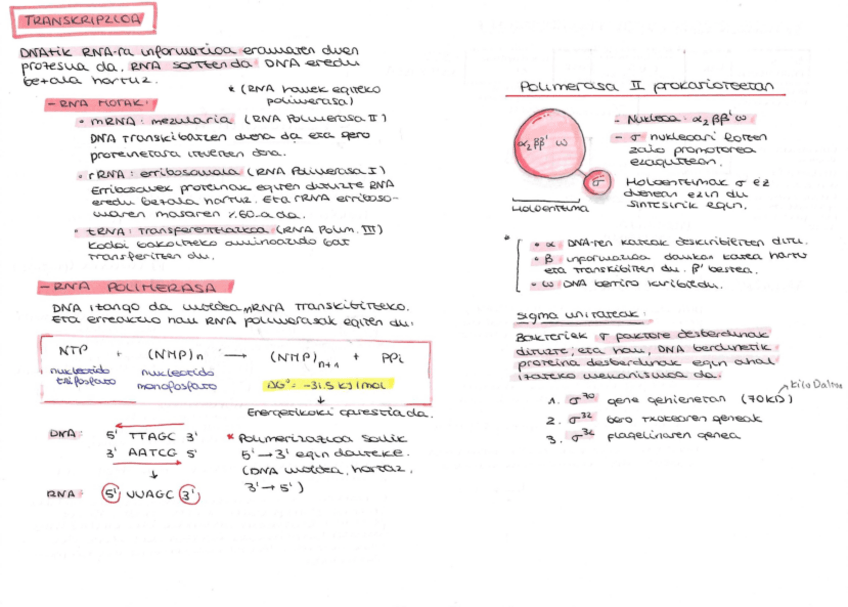 TRANSKRIPZIOA
DNAtik RNA-ra informazioa eramaten duen
prozesua da. RNA sortzen da DNA eredu
bezala hartuz.
* (RNA hauek egiteko
polimerasa)
- RNA MOTAK:
• mRNA: mezularia (RNA Polimerasa II)
DNA transkibatzen duena da eta gero
proteinetara itzultzen dena.
• rRNA: erribosomala (RNA Polimerasa I)
Erribosomek proteinak egiten dituzte RNA
eredu bezala hartuz. Eta rRNA erriboso-
maren masaren %60-a da.
• tRNA: transferentziazkoa (RNA Polim. III)
Kodoi bakoitzeko aminoazido bat
transferitzen du.
- RNA POLIMERASA
DNA izango da moldea mRNA transkibitzeko.
Eta erreakzio hau RNA polimerasak egiten du:
NTP + (NMP)n → (NMP)n+1 + PPi
nucleotido trifosfato
nucleotido monofosfato
ΔG° = -31.5 kJ/mol
Energetikoki garestia da.
DNA: 5' TTAGC 3'
3' AATCG 5'
RNA: 5' UUAGC 3'
* Polimerizazioa soilik
5' → 3' egin daiteke.
(DNA moldea, hartaz,
3' → 5')
Polimerasa II prokariotoetan
α₂ββ' ω
σ
Holoentzima
- Nukleoa: α₂ββ' ω
- σ nukleoari lotzen
zaio promotorea
ezagutzean.
Holoentzimak σ ez
duenean ezin du
sintesirik egin.
*
• α DNA-ren kateak deskiribiltzen ditu.
• β informazioa daukan katea hartu
eta transkibitzen du. β' bestea.
• ω DNA berriro kiribildu.
Sigma unitateak:
Bakteriek σ faktore desberdinak
dituzte; eta hau, DNA berdinetik
proteina desberdinak egin ahal
izateko mekanismoa da.
1. σ⁷⁰ gene gehienetan (70KD)
Kilo Dalton
2. σ³² bero txokearen geneak
3. σ³⁶ flagelinaren genea